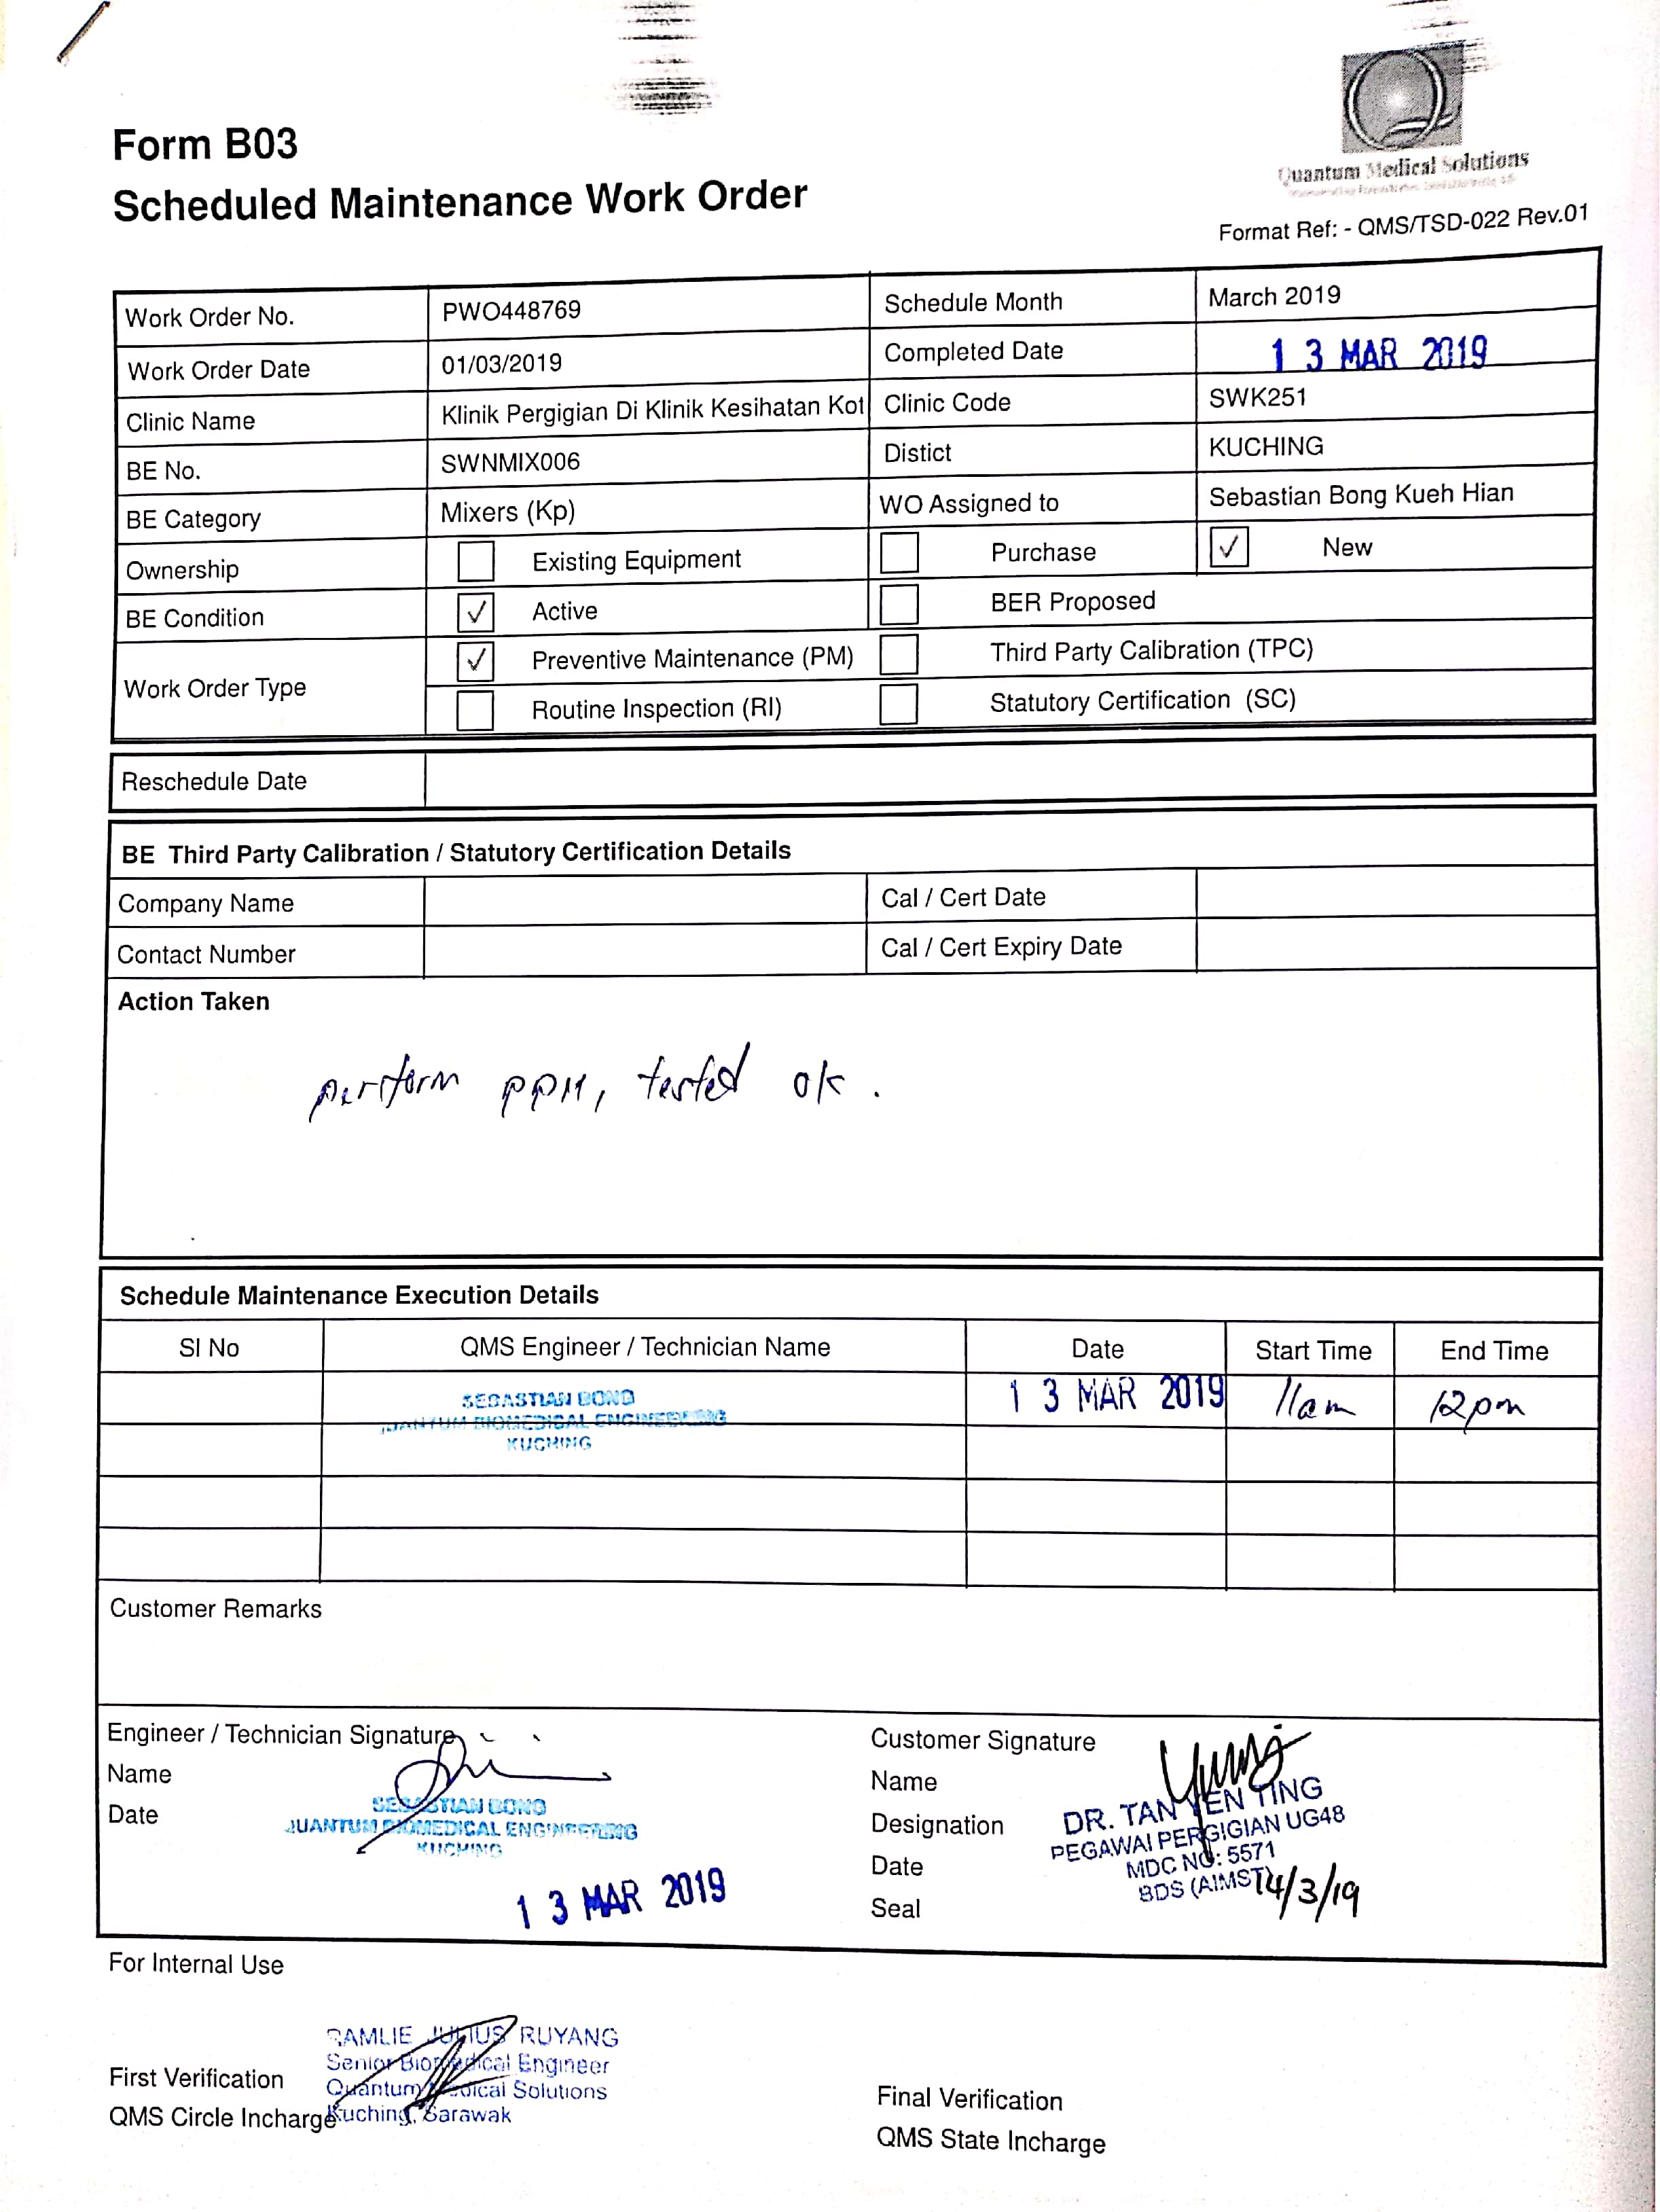 Quantum Medical Solutions
Form B03
Scheduled Maintenance Work Order
Format Ref: - QMS/TSD-022 Rev.01
Work Order No. PWO448769 Schedule Month March 2019
Work Order Date 01/03/2019 Completed Date 13 MAR 2019
Clinic Name Klinik Pergigian Di Klinik Kesihatan Kot Clinic Code SWK251
BE No. SWNMIX006 Distict KUCHING
BE Category Mixers (Kp) WO Assigned to Sebastian Bong Kueh Hian
Ownership Existing Equipment Purchase ✓ New
BE Condition ✓ Active BER Proposed
Work Order Type ✓ Preventive Maintenance (PM) Third Party Calibration (TPC)
Routine Inspection (RI) Statutory Certification (SC)
Reschedule Date
BE Third Party Calibration / Statutory Certification Details
Company Name Cal / Cert Date
Contact Number Cal / Cert Expiry Date
Action Taken
perform PPM, tested ok.
Schedule Maintenance Execution Details
SI No QMS Engineer / Technician Name Date Start Time End Time
SEBASTIAN BONG 13 MAR 2019 11am 12pm
QUANTUM BIOMEDICAL ENGINEERING
KUCHING
Customer Remarks
Engineer / Technician Signature
Name
Date
SEBASTIAN BONG
QUANTUM BIOMEDICAL ENGINEERING
KUCHING
13 MAR 2019
Customer Signature
Name
Designation
Date
Seal
DR. TAN YEN TING
PEGAWAI PERGIGIAN UG48
MDC NO: 5571
BDS (AIMST)
14/3/19
For Internal Use
RAMLIE JULIUS RUYANG
Senior Biomedical Engineer
Quantum Medical Solutions
Kuching, Sarawak
First Verification
QMS Circle Incharge
Final Verification
QMS State Incharge